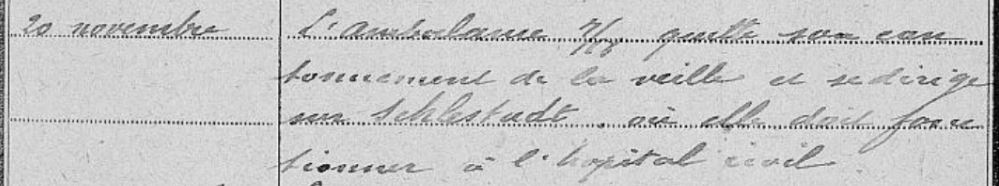 20 novembre L'ambulance 7/18 quitte son can
tonnement de la veille et se dirige
sur Schlestadt, où elle doit fonc
tionner à l'hopital civil